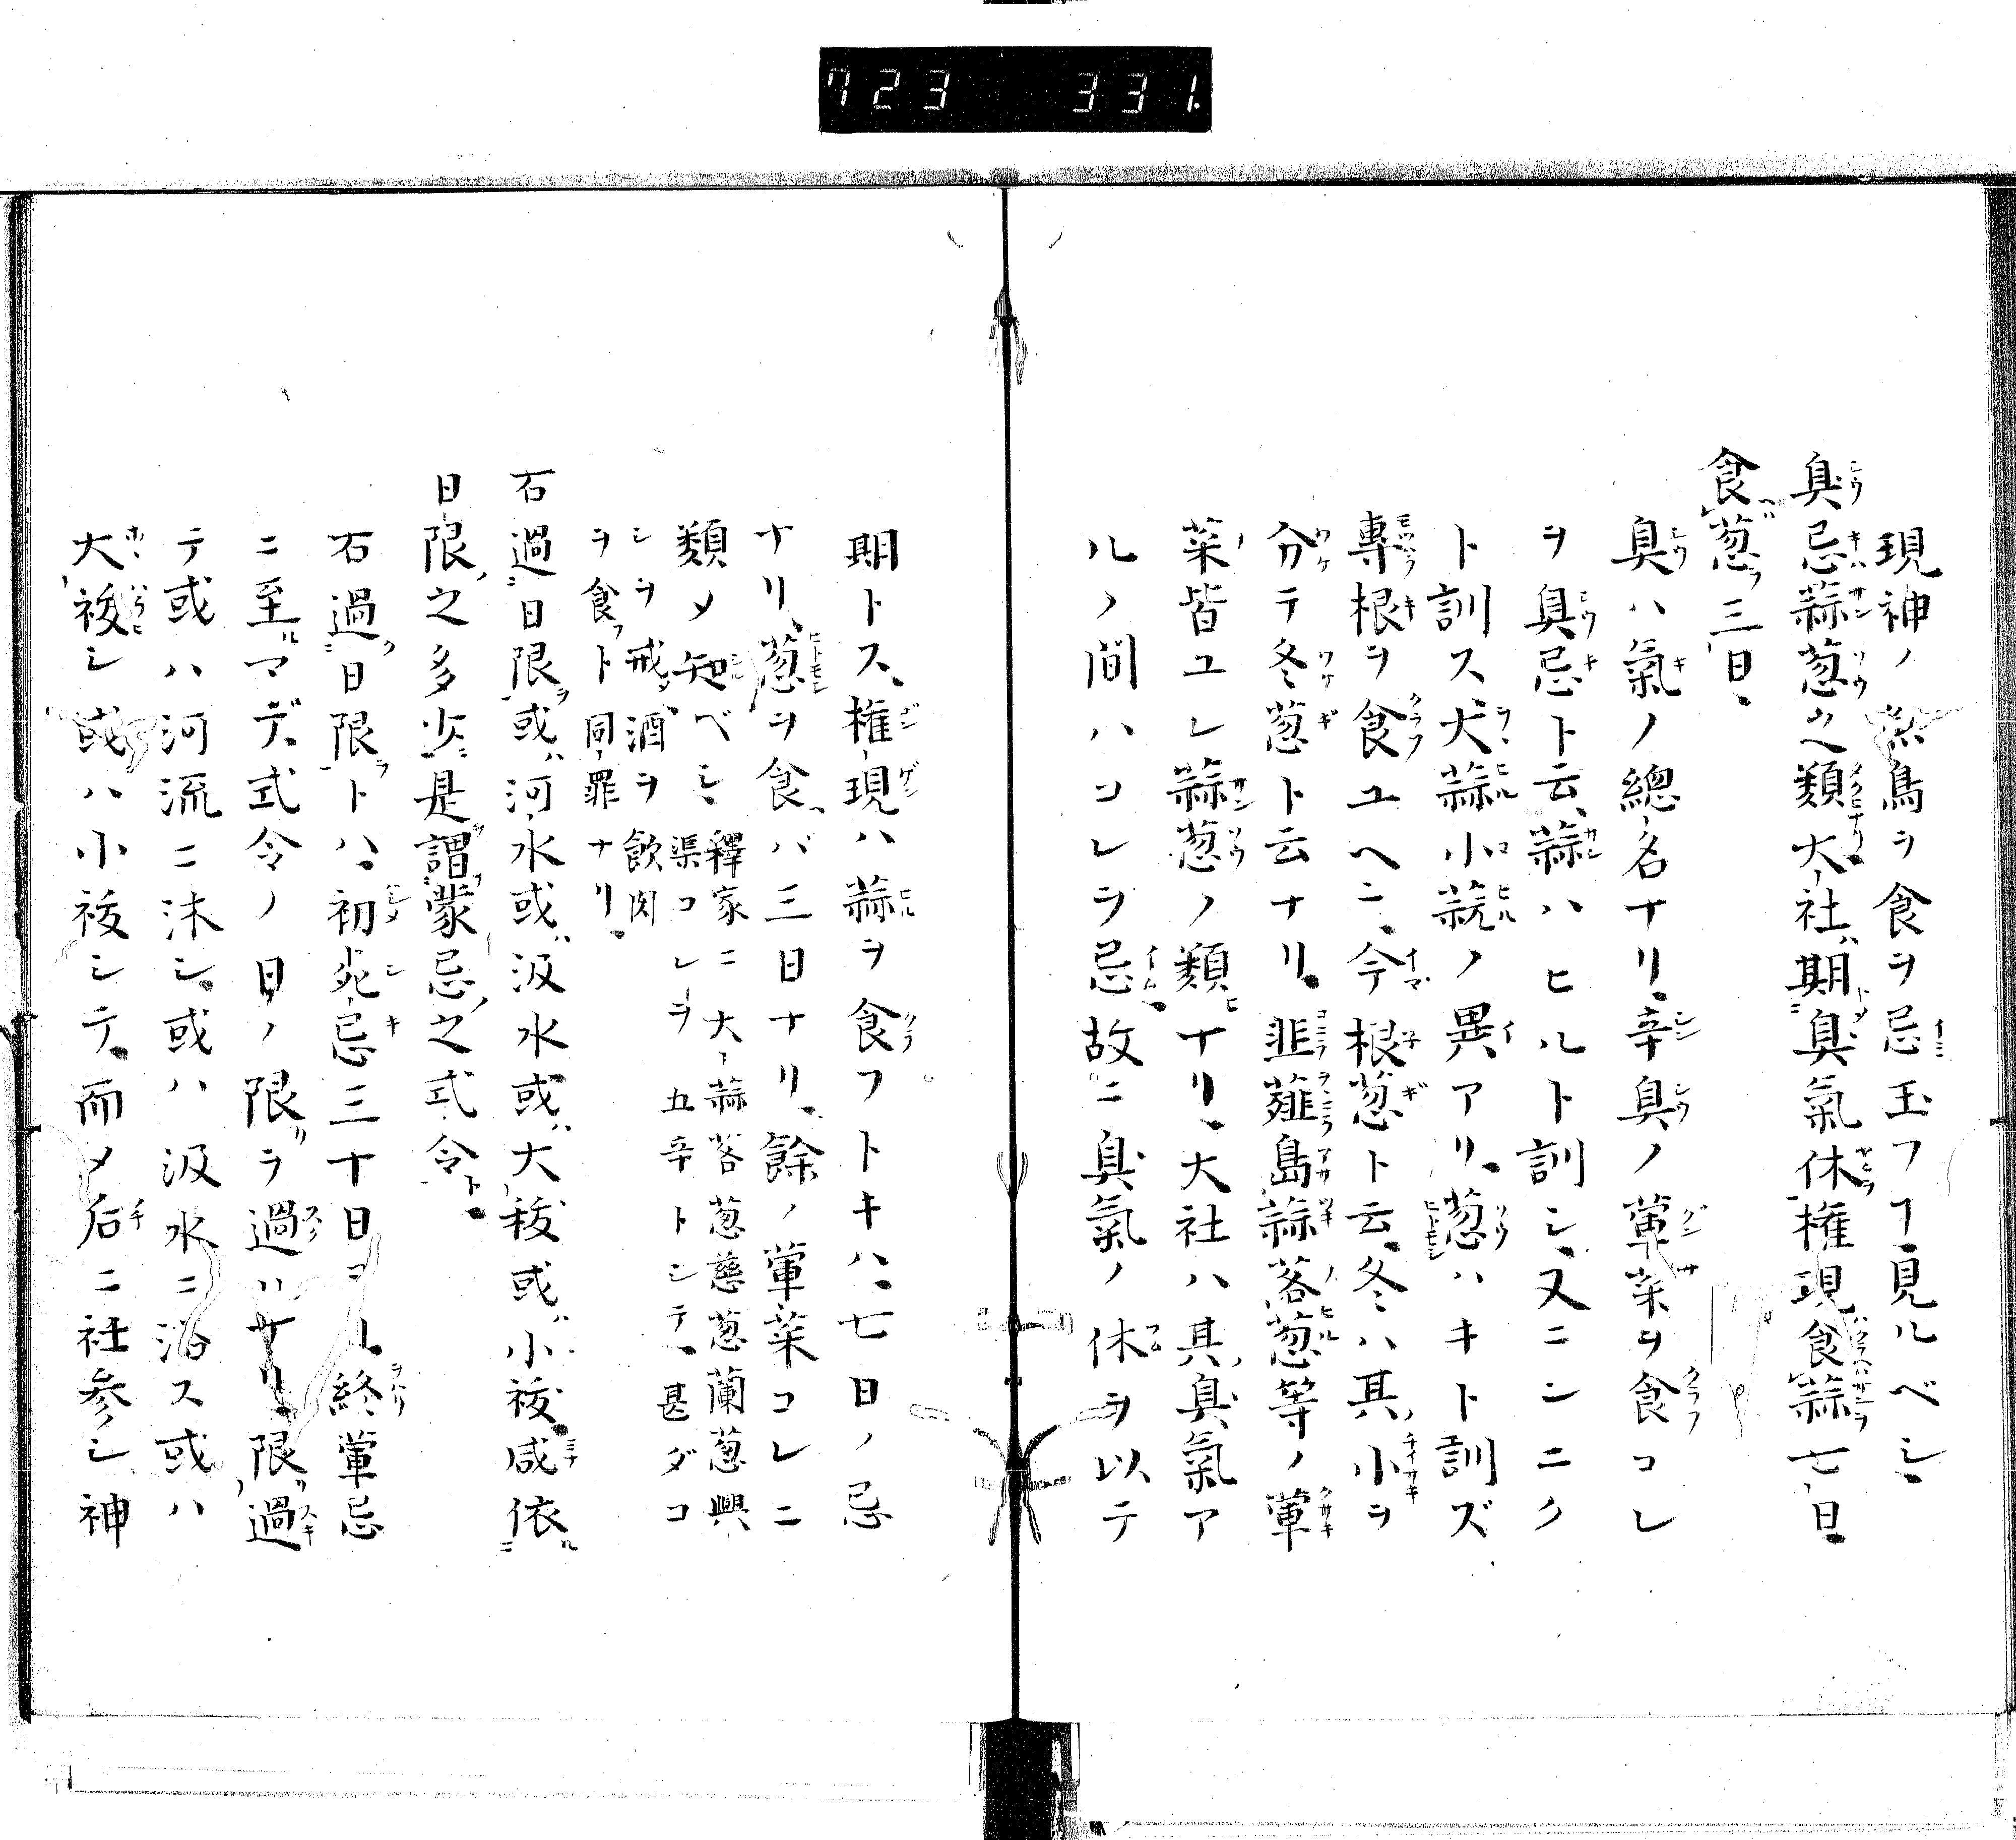 723 331
現神ノ魚鳥ヲ食ヲ忌玉フヿ見ルベシ、
臭忌蒜葱之類大社ハ期臭氣休権現食蒜七日、
食葱三日、
臭ハ氣ノ總名ナリ、辛臭ノ葷菜ヲ食コレ
ヲ臭忌ト云、蒜ハヒルト訓シ、又ニンニク
ト訓ス、大蒜小蒜ノ異アリ、葱ハキト訓ズ
専根ヲ食ユヘニ、今根葱ト云、冬ハ其小ヲ
分テ冬葱ト云ナリ、韭薤島蒜茖葱等ノ葷
菜皆ユレ蒜葱ノ類ナリ、大社ハ其臭氣ア
ルノ間ハコレヲ忌、故ニ臭氣ノ休ヲ以テ
期トス、権現ハ蒜ヲ食フトキハ、七日ノ忌
ナリ、葱ヲ食ヘバ三日ナリ、餘ノ葷菜コレニ
類メ知ベシ、釋家ニ大蒜茖葱慈葱蘭葱興
渠コレヲ五辛トシテ、甚ダコ
レヲ戒メ、酒ヲ飲肉
ヲ食フト同罪ナリ、
右過日限或ハ河水或ハ汲水或ハ大祓或ハ小祓、咸依
日限之多少是謂蒙忌之式令ト、
右過日限トハ、初死忌三十日ヨリ終葷忌
ニ至ルマデ、式令ノ日ノ限リヲ過ハサリ、限過
テ或ハ河流ニ沐シ、或ハ汲水ニ浴ス或ハ
大祓シ或ハ小祓シテ、而メ后ニ社参シ神